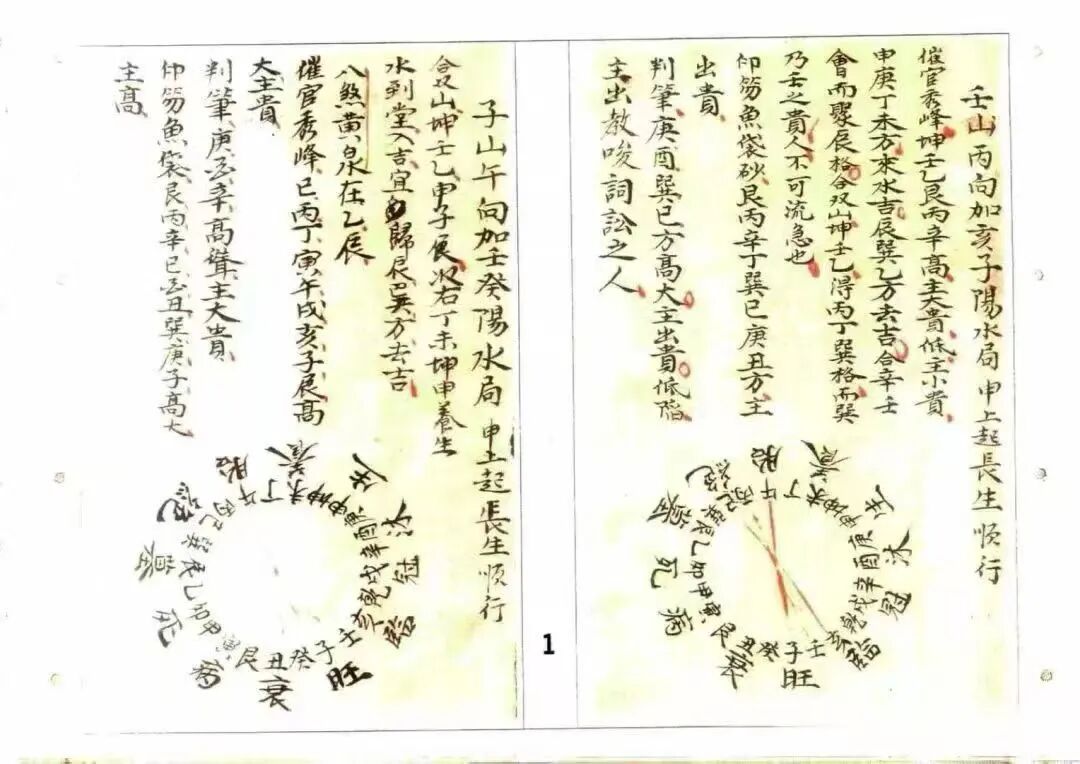 壬山丙向加亥子陽水局申上起長生順行
催官秀峰坤壬乙艮丙辛高主大貴低主小貴
申庚丁未方來水吉辰巽乙方去吉合辛壬
會而聚辰格合双山坤壬乙得丙丁巽格而巽
乃壬之貴人不可流急也
印笏魚袋砂艮丙辛丁巽巳庚丑方主
出貴
判筆庚酉巽巳方高大主出貴低階
主出教唆詞訟之人
胎養生沐冠臨旺衰病死墓絕
午丁未坤申庚酉辛戌乾亥壬子癸丑艮寅甲卯乙辰巽巳丙
1
子山午向加壬癸陽水局申上起長生順行
合双山坤壬乙申子辰收右丁未坤申養生
水到堂入吉宜歸辰巽方去吉
八煞黃泉在乙辰
催官秀峰巳丙丁寅午戌亥子辰高
大主貴
判筆庚酉辛高聳主大貴
印笏魚袋艮丙辛巳酉丑巽庚子高大
主高
胎養生沐冠臨旺衰病死墓絕
午丁未坤申庚酉辛戌乾亥壬子癸丑艮寅甲卯乙辰巽巳丙